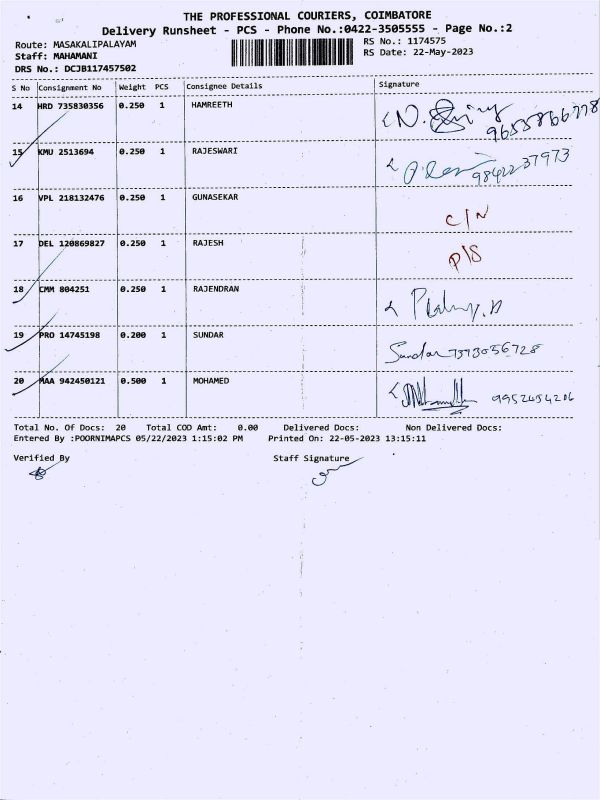 THE PROFESSIONAL COURIERS, COIMBATORE
Delivery Runsheet - PCS - Phone No.:0422-3505555 - Page No.:2
Route: MASAKALIPALAYAM
Staff: MAHAMANI
DRS No.: DCJB117457502
RS No.: 1174575
RS Date: 22-May-2023
S No Consignment No Weight PCS Consignee Details Signature
14 HRD 735830356 0.250 1 HAMREETH
15 KMU 2513694 0.250 1 RAJESWARI 9842237973
16 VPL 218132476 0.250 1 GUNASEKAR C/N
17 DEL 120869827 0.250 1 RAJESH P/S
18 CMM 804251 0.250 1 RAJENDRAN
19 PRO 14745198 0.200 1 SUNDAR Sundar 7373056728
20 MAA 942450121 0.500 1 MOHAMED
Total No. Of Docs: 20 Total COD Amt: 0.00 Delivered Docs: Non Delivered Docs:
Entered By :POORNIMAPCS 05/22/2023 1:15:02 PM Printed On: 22-05-2023 13:15:11
Verified By Staff Signature